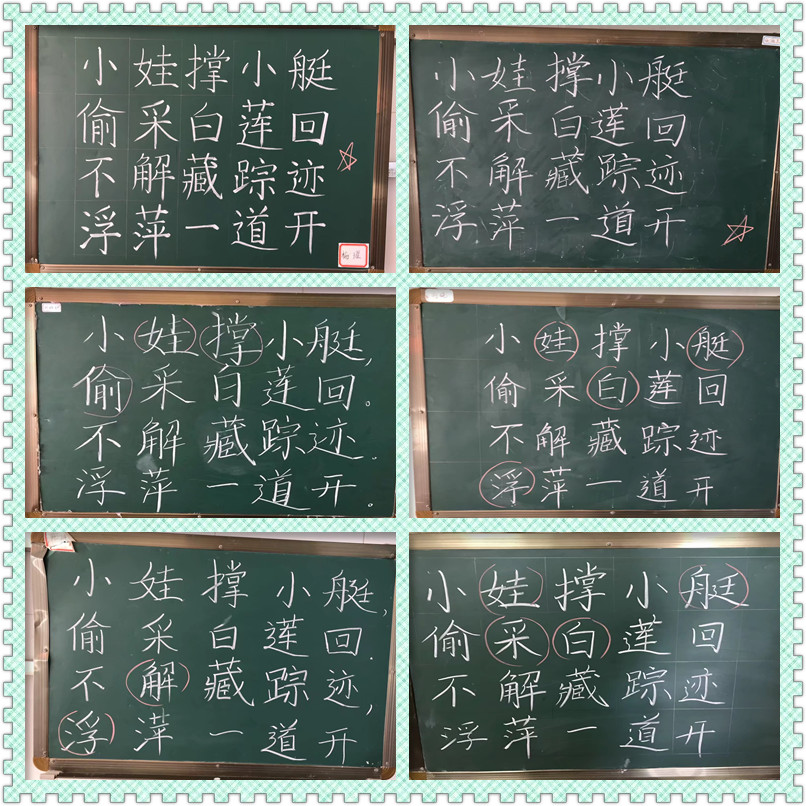 小娃撑小艇
偷采白莲回
不解藏踪迹
浮萍一道开
小娃撑小艇
偷采白莲回
不解藏踪迹
浮萍一道开
小娃撑小艇,
偷采白莲回。
不解藏踪迹,
浮萍一道开。
小娃撑小艇
偷采白莲回
不解藏踪迹
浮萍一道开
小娃撑小艇,
偷采白莲回.
不解藏踪迹,
浮萍一道开
小娃撑小艇
偷采白莲回
不解藏踪迹
浮萍一道开